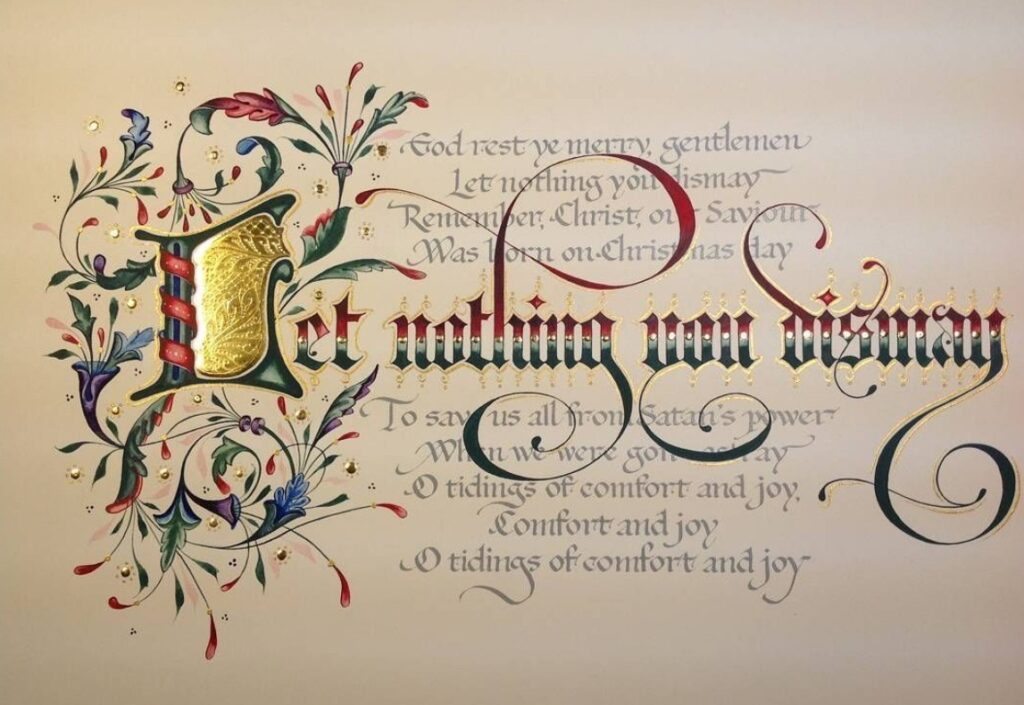 God rest ye merry, gentlemen
Let nothing you dismay
Remember, Christ, our Saviour
Was born on Christmas day
Let nothing you dismay
To save us all from Satan's power
When we were gone astray
O tidings of comfort and joy,
Comfort and joy
O tidings of comfort and joy